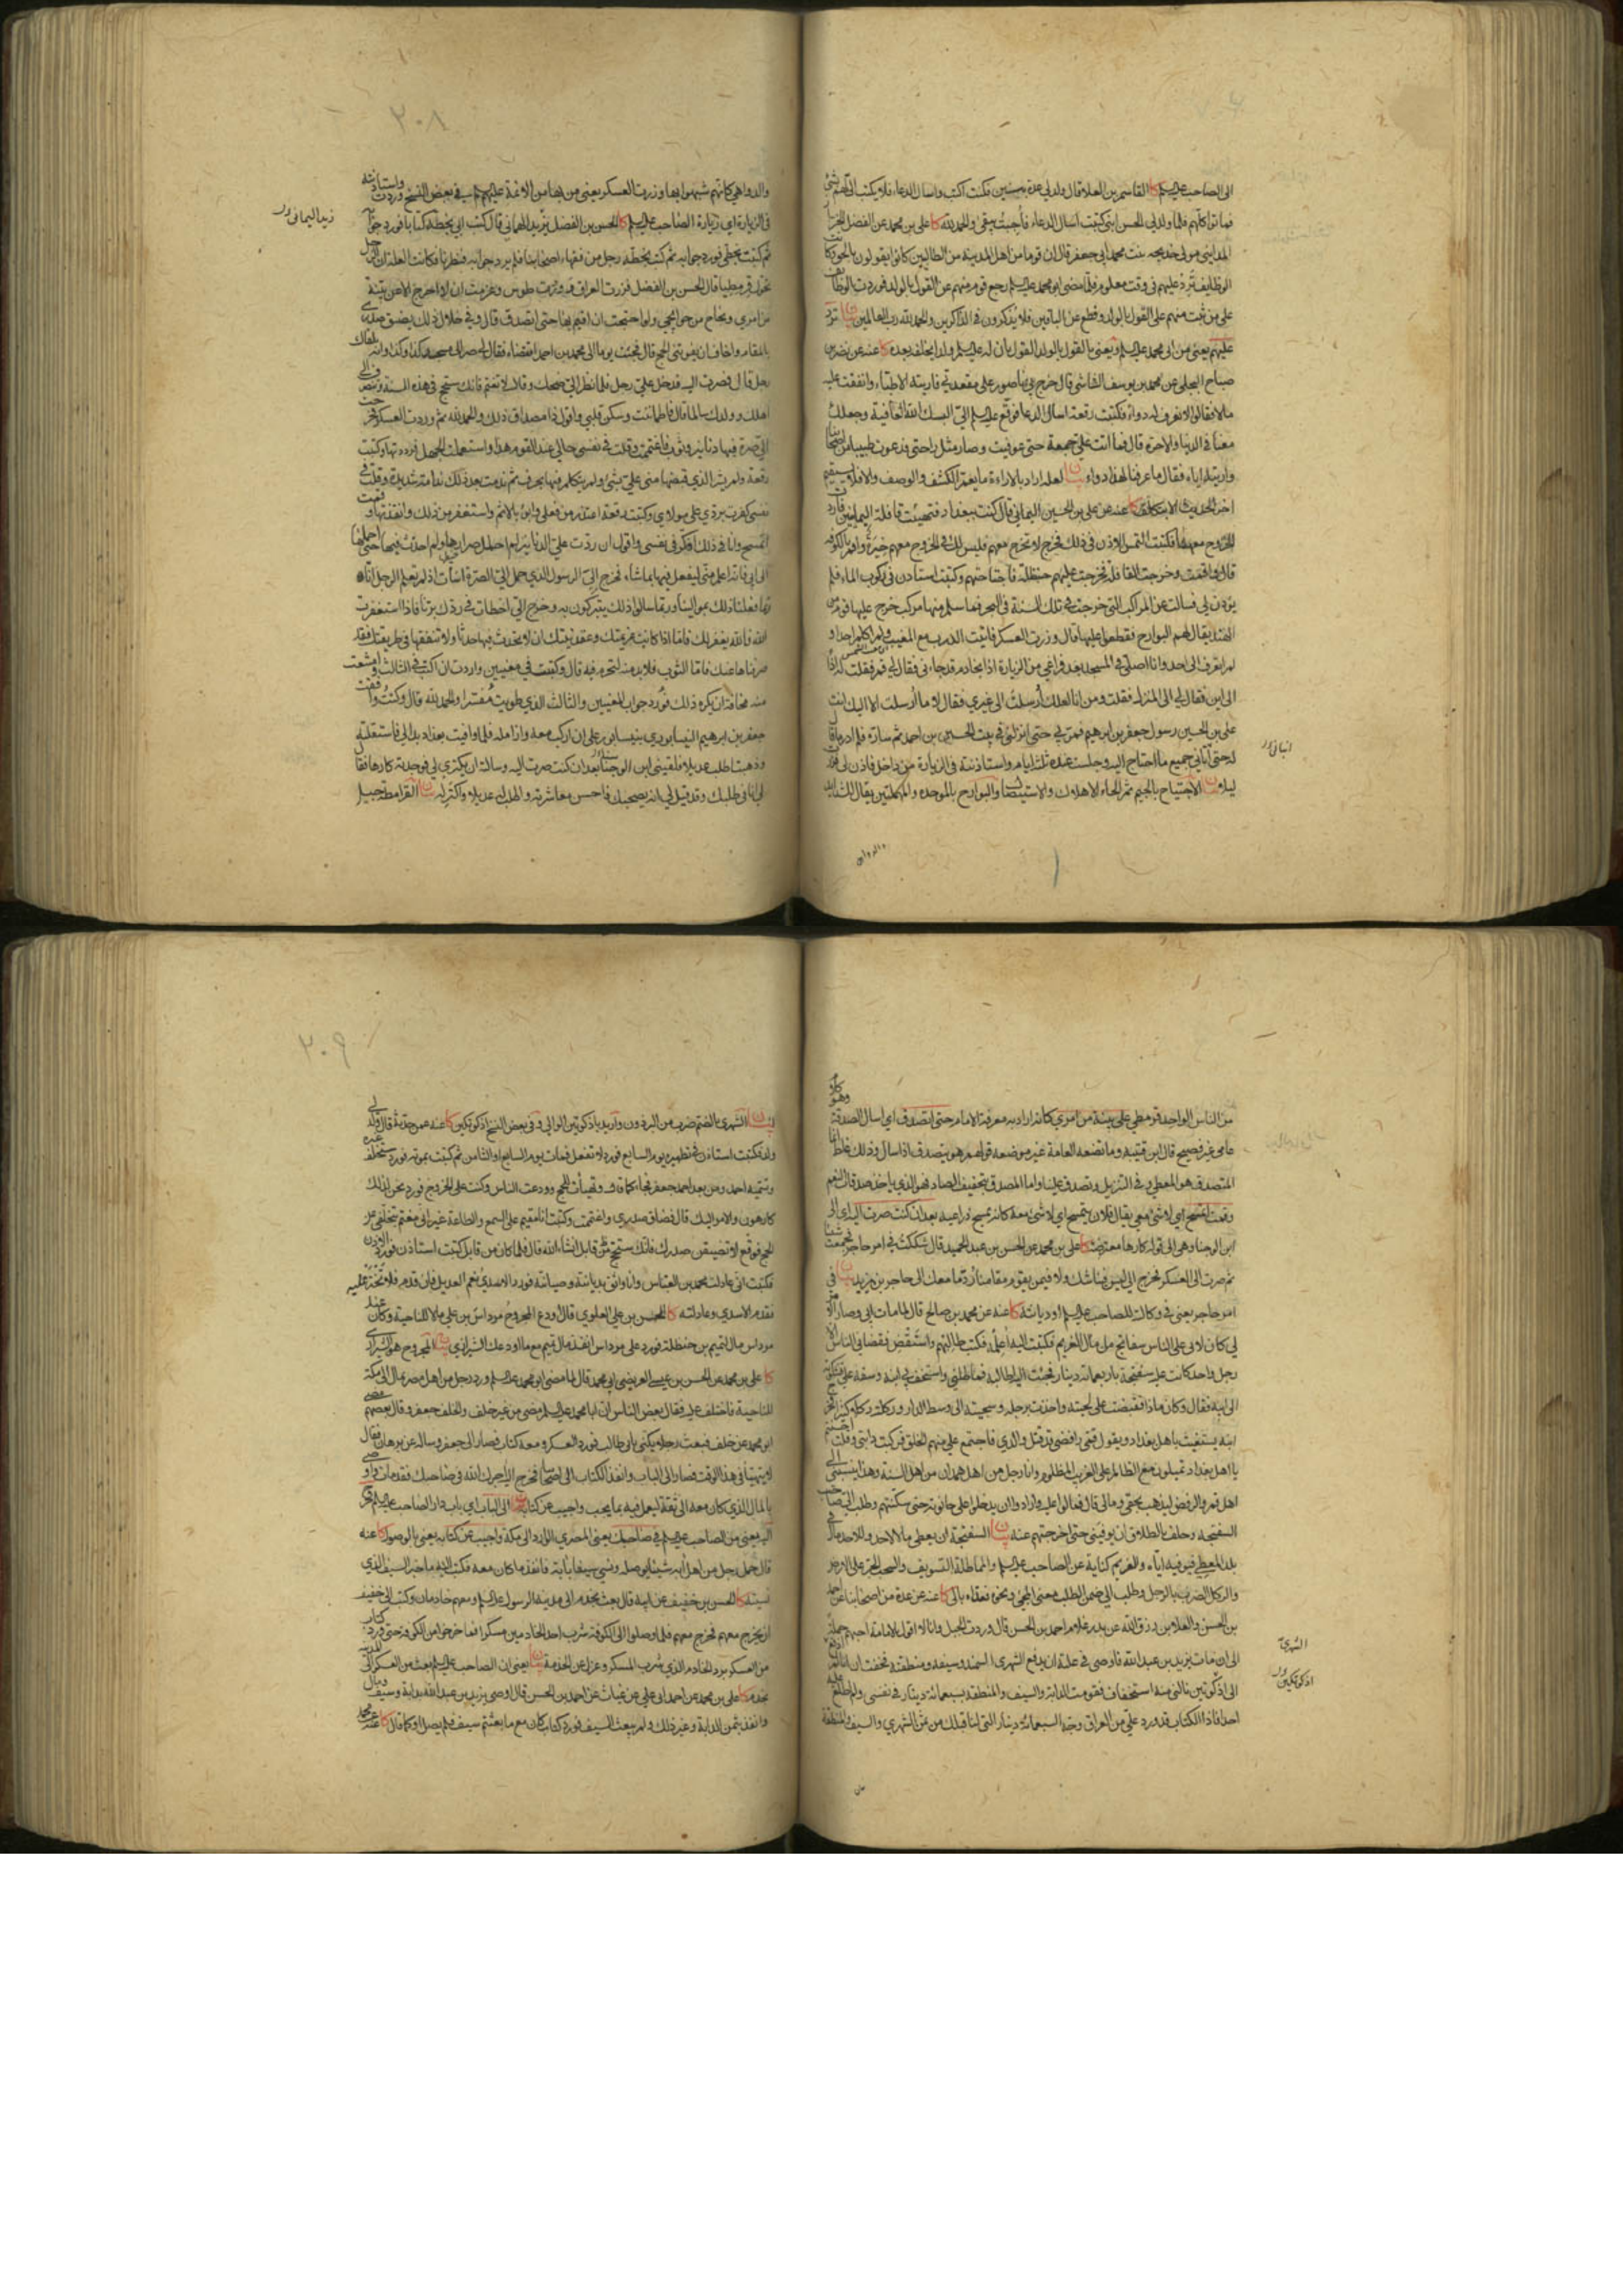 الى الصاحب عليه السلم كا القاسم بن العلا قال ولد لي عدة بنين فكنت اكتب واسال الدعاء فلا يكتب الي لهم بشئ
فماتوا كلهم فلما ولد لي الحسن ابني كتبت اسال الدعاء فأجبت يبقى والحمد لله كا علي بن محمد عن الفضل الخزاز
المدايني مولى خديجه بنت محمد ابي جعفر قال ان قوما من اهل المدينة من الطالبين كانوا يقولون بالحق وكانت
الوظايف ترد عليهم في وقت معلوم فلما مضى ابو محمد عليه السلم رجع قوم منهم عن القول بالولد فوردت الوظايف
على من ثبت منهم على القول بالولد وقطع عن الباقين فلا يذكرون في الذاكرين والحمد لله رب العالمين بيان ترد
عليهم يعني من ابي محمد عليه السلم ويعني بالقول بالولد القول بان له عليه السلم ولدا يخلفه بعده كا عنه عن نضر بن
صباح البجلي عن محمد بن يوسف الشاشي قال خرج بي ناصور على مقعدتي فاريته الاطباء وانفقت عليه
مالا فقالوا لا نعرف له دواء فكتبت رقعة اسال الدعا فوقع عليه السلم الي البسك الله العافية وجعلك
معنا في الدنيا والاخرة قال فما اتت علي جمعة حتى عوفيت وصار مثل راحتي فدعوت طبيبا من اصحابنا
واريته اياه فقال ما عرفنا لهذا دواء بيان لعله اراد بالاراءة ما يعم الكشف والوصف والا فلا يستقيم
اخر الحديث الا بتكلف كا عنه عن علي بن الحسين اليماني قال كنت ببغداد فتهيئت قافلة اليمانيين فاردت
الخروج معهم فكتبت التمس الاذن في ذلك فخرج لا تخرج معهم فليس لك في الخروج معهم خيرة واقم بالكوفة
قال واقمت وخرجت القافلة فخرجت عليهم حنظلة فاجتاحتهم وكتبت استاذن في ركوب الماء فلم
يؤذن لي فسالت عن المراكب التي خرجت في تلك السنة في البحر فما سلم منها مركب خرج عليها قوم من
الهند يقال لهم البوارح فقطعوا عليها قال وزرت العسكر فاتيت الدرب مع المغيب ولم اكلم احدا و
لم اتعرف الى احد وانا اصلي في المسجد بعد فراغي من الزيارة اذا بخادم قد جاءني فقال لي قم فقلت له اذا
الى اين فقال لي الى المنزل فقلت ومن انا لعلك أرسلت الى غيري فقال لا ما أرسلت الا اليك انت
علي بن الحسين رسول جعفر بن ابرهيم فمر بي حتى انزلني في بيت الحسين بن احمد ثم ساره فلم ادر ما قال
له حتى آتاني جميع ما احتاج اليه وجلست عنده ثلثة ايام واستاذنته في الزيارة من داخل فاذن لي فزرت
ليلا بيان الاجتياح بالجيم ثم الحاء الاهلاك والاستيصال والبوارح بالموحده والمهملتين يقال للشدايد
والدواهي
والدواهي كانهم شبهوا بها وزرت العسكر يعني من بها من الائمة عليهم السلم في بعض النسخ وردت واستاذنته
في الزيارة اي زيارة الصاحب عليه السلم كا الحسن بن الفضل بن يزيد الهماني قال كتب ابي بخطه كتابا فورد جوابه
ثم كتبت بخطي فورد جوابه ثم كتب بخطه رجل من فقهاء اصحابنا فلم يرد جوابه فنظرنا فكانت العلة ان الرجل
تحول قرمطيا قال الحسن بن الفضل فزرت العراق ووردت طوس وعزمت ان لا اخرج الا عن بينة
من امري ونجاح من حوايجي ولو احتجت ان اقيم بها حتى اتصدق قال وفي خلال ذلك يضيق صدري
بالمقام واخاف ان يفوتني الحج قال فجئت يوما الى محمد بن احمد اتقضاه فقال لي صر الى مسجد كذا وكذا وانه يلقاك
رجل قال فصرت اليه فدخل علي رجل فلما نظر الي ضحك وقال لا تغتم فانك ستحج في هذه السنة وتنصرف الى
اهلك وولدك سالما قال فاطماننت وسكن قلبي واقول ذا مصداق ذلك والحمد لله ثم وردت العسكر فخرجت
الي صرة فيها دنانير وثوب فاغتممت وقلت في نفسي جزائي عند القوم هذا واستعملت الجهل فرددتها وكتبت
رقعة ولم يشر الذي قبضها مني علي بشئ ولم يتكلم فيها بحرف ثم ندمت بعد ذلك ندامة شديدة وقلت في
نفسي كفرت بردي على مولاي وكتبت رقعة اعتذر من فعلي وابوء بالاثم واستغفر من ذلك وانفذتها وقمت
اتمسح وانا في ذلك افكر في نفسي واقول ان ردت علي الدنانير لم احلل صرارها ولم احدث فيها حتى احملها
الى ابي فانه اعلم مني ليعمل فيها بما شاء فخرج الي الرسول الذي حمل الي الصرة اسأت اذ لم تعلم الرجل انا
ربما فعلنا ذلك بموالينا وربما سالوا ذلك يتبركون به وخرج الي اخطات في ردك برنا فاذا استغفرت
الله فالله يغفر لك فاما اذا كانت عزيمتك وعقد نيتك ان لا تحدث فيها حدثا ولا تنفقها في طريقك فقد
صرفناها عنك فاما الثوب فلا بد منه لتحرم فيه قال وكتبت في معنيين واردت ان اكتب في الثالث وامتنعت
منه مخافة ان يكره ذلك فورد جواب المعنيين والثالث الذي طويت مفسرا والحمد لله قال وكنت وافقت
جعفر بن ابرهيم النيسابوري بنيسابور على ان اركب معه وازامله فلما وافيت بغداد بدا لي فاستقلته
وذهبت اطلب عديلا فلقيني ابن الوجنا بعد ان كنت صرت اليه وسالته ان يكتري لي فوجدته كارها فقال
لي انا في طلبك وقد قيل لي انه يصحبك فاحسن معاشرته واطلب له عديلا واكتر له بيان القرامطة جيل
٢٠٨
من الناس الواحد قرمطي على بينة من امري كانه اراد به معرفة الامام حتى اتصدق اي اسال الصدقة وهو كلام
عامي غير فصيح قال ابن قتيبة وما تضعه العامة غير موضعه قولهم هو يتصدق اذا سال وذلك غلط انما
المتصدق هو المعطي وفي التنزيل وتصدق علينا واما المصدق بتخفيف الصاد فهو الذي ياخذ صدقات النعم
وقمت اتمسح اي لا شئ معي يقال فلان يتمسح اي لا شئ معه كانه يمسح ذراعيه بعد ان كنت صرت اليه اي الى
ابن الوجنا وهو الى قوله كارها معترضة كا علي بن محمد عن الحسن بن عبد الحميد قال شككت في امر حاجز فجمعت شيئا
ثم صرت الى العسكر فخرج الي ليس فينا شك ولا فيمن يقوم مقامنا رد ما معك الى حاجز بن يزيد بيان في
امر حاجز يعني في وكالته للصاحب عليه السلم او ديانته كا عنه عن محمد بن صالح قال لما مات ابي وصار الامر
لي كان لابي على الناس سفاتج من مال الغريم فكتبت اليه أعلمه فكتب طالبهم واستقض فقضاني الناس الا
رجل واحد كانت عليه سفتجة باربعمائة دينار فجئت اليه اطالبه فماطلني واستخف بي ابنه وسفه علي فشكوته
الى ابيه فقال وكان ماذا فقبضت على لحيته واخذت برجله وسحبته الى وسط الدار وركلته ركلا كثيرا فخرج
ابنه يستغيث باهل بغداد ويقول قمي رافضي قد قتل والدي فاجتمع علي منهم الخلق فركبت دابتي وقلت احسنتم
يا اهل بغداد تميلون مع الظالم على الغريب المظلوم وانا رجل من اهل همدان من اهل السنة وهذا ينسبني الى
اهل قم والرفض ليذهب بحقي ومالي قال فمالوا عليه وارادوا ان يدخلوا على حانوته حتى سكنتهم وطلب الي صاحب
السفتجة وحلف بالطلاق ان يوفيني حتى اخرجتهم عنه بيان السفتجة ان يعطي مالا لاحد وللاخذ مال في
بلد المعطي فيوفيه اياه والغريم كناية عن الصاحب عليه السلم والمماطلة التسويف والسحب الجر على الارض
والركل الضرب بالرجل وطلب الي ضمن الطلب معنى المجئ ونحوه فعداه بالى كا عنه عن عدة من اصحابنا عن احمد
بن الحسن والعلا بن رزق الله عن بدر غلام احمد بن الحسن قال وردت الجبل وانا لا اقول بالامامة احبهم جملة
الى ان مات يزيد بن عبد الله فاوصى في علته ان يدفع الشهري السمند وسيفه ومنطقته فخفت ان انا لم ادفع
الى اذكوتين نالني منه استخفاف فقومت الدابة والسيف والمنطقة بسبعمائة دينار في نفسي ولم اطلع عليه
احدا فاذا الكتاب قد ورد علي من العراق وجه السبعمائة دينار التي لنا قبلك من ثمن الشهري والسيف والمنطقة
بيان
الشهري بالضم ضرب من البرذون واريد باذكوتين الوالي وفي بعض النسخ اذكوتكين كا عنه عمن حدثه قال ولد لي
ولد فكتبت استاذن في تطهيره يوم السابع فورد لا تفعل فمات يوم السابع او الثامن ثم كتبت بموته فورد ستخلف غيره
وتسميه احمد ومن بعد احمد جعفر فجاء كما قال وتهيأت للحج وودعت الناس وكنت على الخروج فورد نحن لذلك
كارهون والامر اليك قال فضاق صدري واغتممت وكتبت انا مقيم على السمع والطاعة غير اني مغتم بتخلفي عن
الحج فوقع لا تضيقن صدرك فانك ستحج من قابل انشاء الله قال فلما كان من قابل كتبت استاذن فورد الاذن
فكتبت اني عادلت محمد بن العباس وانا واثق بديانته وصيانته فورد الاسدي نعم العديل فان قدم فلا تختر عليه
فقدم الاسدي وعادلته كا الحسن بن علي العلوي قال اودع المجروح مرداس بن علي مالا للناحية وكان عند
مرداس مال لتميم بن حنظلة فورد على مرداس انفذ مال تميم مع ما اودعك الشيرازي بيان المجروح هو الشيرازي
كا علي بن محمد عن الحسن بن عيسى العريضي ابي محمد قال لما مضى ابو محمد عليه السلم ورد رجل من اهل مصر بمال الى مكة
للناحية فاختلف عليه فقال بعض الناس ان ابا محمد عليه السلم مضى من غير خلف والخلف جعفر وقال بعضهم مضى
ابو محمد عن خلف فبعث رجلا يكنى بابي طالب فورد العسكر ومعه كتاب فصار الى جعفر وساله عن برهان فقال
لا يتهيأ في هذا الوقت فصار الى الباب وانفذ الكتاب الى اصحابنا فخرج اليه آجرك الله في صاحبك فقد مات واوصى
بالمال الذي كان معه الى ثقة ليعمل فيه بما يجب واجيب عن كتابه بيان الى الباب اي باب دار الصاحب عليه السلم فخرج
اليه يعني من الصاحب عليه السلم في صاحبك يعني المصري الوارد الى مكة واجيب عن كتابه يعني بالوصول كا عنه
قال حمل رجل من اهل آبه شيئا يوصله ونسي سيفا بآبة فانفذ ما كان معه فكتب اليه ما خبر السيف الذي
نسيته كا الحسن بن خفيف عن ابيه قال بعث بخدم الى مدينة الرسول عليه السلم ومعهم خادمان وكتب الى خفيف
ان يخرج معهم فخرج معهم فلما وصلوا الى الكوفة شرب احد الخادمين مسكرا فما خرجوا من الكوفة حتى ورد كتاب
من العسكر برد الخادم الذي شرب المسكر وعزل عن الخدمة بيان يعني ان الصاحب عليه السلم بعث من العسكر الى المدينة
بخدم كا علي بن محمد عن احمد ابي علي بن غياث عن احمد بن الحسن قال اوصى يزيد بن عبد الله بدابة وسيف ومال
وانفذ ثمن الدابة وغير ذلك ولم يبعث السيف فورد كتاب كان مع ما بعثتم سيف فلم يصل او كما قال كا عنه عن محمد
٢٠٩